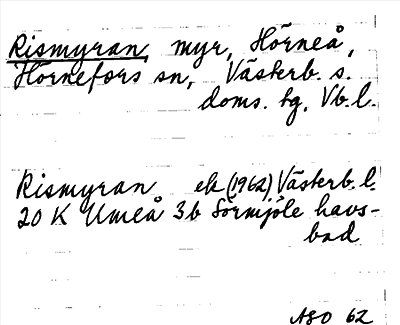 Rismyran, myr, Hörneå,
Hörnefors sn, Västerb. s.
doms. tg, Vb.l.
Rismyran ek (1962) Västerb. l.
20 K Umeå 3b Sörmjöle havs-
bad
ASO 62